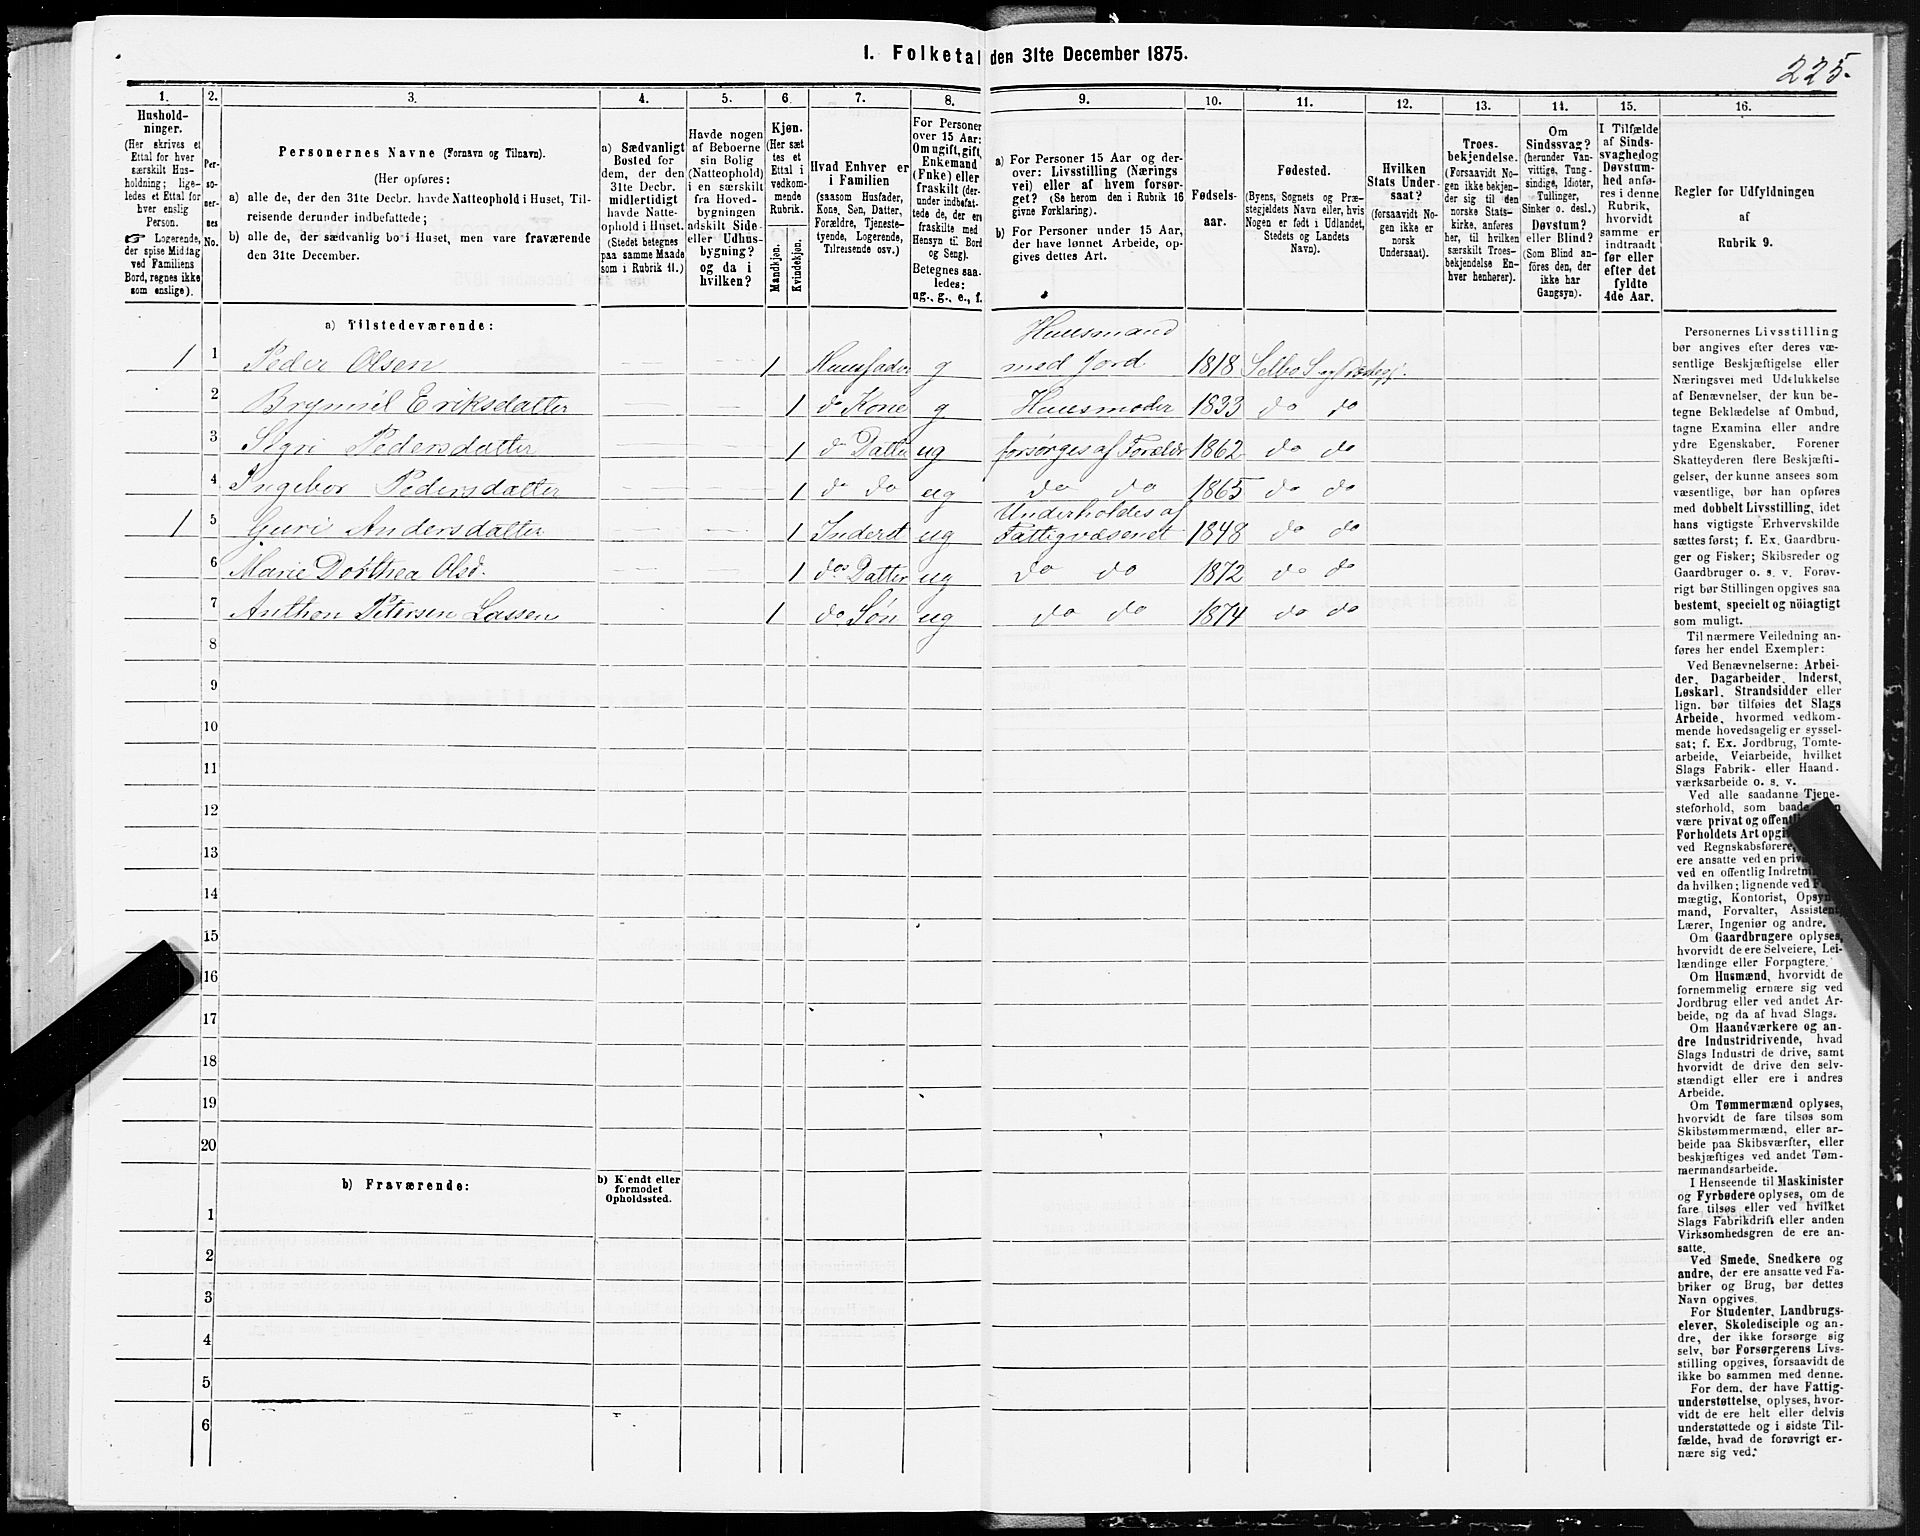 1. Folketal den 31te December 1875.
225.
1.
2.
3.
4.
5.
6.
7.
8.
9.
10.
11.
12.
13.
14.
15.
16.
Hushold-
ninger.
(Her skrives et
Ettal for hver
særskilt Hus-
holdning; lige-
ledes et Ettal for
hver enslig
Person.
☞ Logerende,
der spise Middag
ved Familiens
Bord, regnes ikke
som enslige).
Per-
so-
ner-
nes
No.
Personernes Navne (Fornavn og Tilnavn).
(Her opføres:
a) alle de, der den 31te Decbr. havde Natteophold i Huset, Til-
reisende derunder indbefattede;
b) alle de, der sædvanlig bo i Huset, men vare fraværende
den 31te December.
a) Sædvanligt
Bosted for
dem, der den
31te Decbr.
midlertidigt
havde Natte-
ophold i Huset.
(Stedet betegnes
paa samme Maade
som i Rubrik 11.)
Havde nogen
af Beboerne
sin Bolig
(Natteophold)
i en særskilt
fra Hoved-
bygningen
adskilt Side-
eller Udhus-
bygning?
og da i
hvilken?
Kjøn.
(Her sæt
tes et
Ettal i
vedkom-
mende
Rubrik.
Mandkjøn.
Kvindekjøn.
Hvad Enhver er
i Familien
(saasom Husfader,
Kone, Søn, Datter,
Forældre, Tjeneste-
tyende, Logerende,
Tilreisende osv.)
For Personer
over 15 Aar:
Om ugift, gift,
Enkemand
(Enke) eller
fraskilt (der-
under indbefat-
tede de, der ere
fraskilte med
Hensyn til Bord
og Seng).
Betegnes saa-
ledes:
ug., g., e., f.
a) For Personer 15 Aar og der-
over: Livsstilling (Nærings
vei) eller af hvem forsør-
get? (Se herom den i Rubrik 16
givne Forklaring).
b) For Personer under 15 Aar,
der have lønnet Arbeide, op-
gives dettes Art.
Fødsels-
aar.
Fødested.
(Byens, Sognets og Præ-
stegjeldets Navn eller, hvis
Nogen er født i Udlandet,
Stedets og Landets
Navn).
Hvilken
Stats Under-
saat?
(forsaavidt No-
gen ikke er
norsk
Undersaat).
Troes-
bekjendelse.
(Forsaavidt No-
gen ikke bekjen-
der sig til den
norske Stats-
kirke, anføres
her, til hvilken
særskilt Troes-
bekjendelse En-
hver henhører).
Om
Sindssvag?
(herunder Van-
vittige, Tung-
sindige, Idioter,
Tullinger,
Sinker o. desl.)
Døvstum?
eller Blind?
(Som Blind an-
føres den, der
ikke har
Gangsyn).
I Tilfælde
af Sinds-
svaghed og
Døvstum-
hed anfø-
res i denne
Rubrik,
hvorvidt
samme er
indtraadt
før eller
efter det
fyldte
4de Aar.
Regler for Udfyldningen
af
Rubrik 9.
a) Tilstedeværende:
1 1 Peder Olsen 1 Huusfader g Huusmand
med Jord 1818 Selbo S. og Præstegj.
2 Bryniel Eriksdatter 1 do Kone g Huusmoder 1833 do do
3 Sigri Pedersdatter 1 do Datter ug forsørges af Forældr 1862 do do
4 Ingebor Pedersdatter 1 do do ug do do 1865 do do
1 5 Guri Andersdatter 1 Inderst ug Underholdes af
Fattigvæsenet 1848 do do
6 Marie Dorthea Olsd. 1 ds Datter ug do do 1872 do do
7 Anthon Petersen Lassen 1 do Søn ug do do 1874 do do
8
9
10
11
12
13
14
15
16
17
18
19
20
b) Fraværende:
b) Kjendt eller
formodet
Opholdssted.
1
2
3
4
5
6
Personernes Livsstilling
bør angives efter deres væ-
sentlige Beskjæftigelse eller
Næringsvei med Udelukkelse
af Benævnelser, der kun be-
tegne Beklædelse af Ombud,
tagne Examina eller andre
ydre Egenskaber. Forener
Skatteyderen flere Beskjæfti-
gelser, der kunne ansees som
væsentlige, bør han opføres
med dobbelt Livsstilling, idet
hans vigtigste Erhvervskilde
sættes først; f. Ex. Gaardbru-
ger og Fisker; Skibsreder og
Gaardbruger o. s. v. Forøv-
rigt bør Stillingen opgives saa
bestemt, specielt og nöiagtigt
som muligt.
Til nærmere Veiledning an-
føres her endel Exempler:
Ved Benævnelserne: Arbei-
der, Dagarbeider, Inderst,
Løskarl, Strandsidder eller
lign. bør tilføies det Slags
Arbeide, hvormed vedkom-
mende hovedsagelig er syssel-
sat; f. Ex. Jordbrug, Tomte-
arbeide, Veiarbeide, hvilket
Slags Fabrik- eller Haand-
værksarbeide o. s. v.
Ved alle saadanne Tjene-
steforhold, som baade
være privat og
Forholdets Art
ved Regnskabsførere,
ere ansatte ved en
ved en offentlig
da hvilken; lignende ved
mægtig, Kontorist,
mand, Forvalter, Assistent,
Lærer, Ingeniør og andre.
Om Gaardbrugere oplyses,
hvorvidt de ere Selveiere, Lei-
lændinge eller Forpagtere.
Om Husmænd, hvorvidt de
fornemmelig ernære sig ved
Jordbrug eller ved andet Ar-
beide, og da af hvad Slags.
Om Haandværkere og an-
dre Industridrivende, hvad
Slags Industri de drive, samt
hvorvidt de drive den selv-
stændigt eller ere i andres
Arbeide.
Om Tømmermænd oplyses,
hvorvidt de fare tilsøs som
Skibstømmermænd, eller ar-
beide paa Skibsværfter, eller
beskjæftiges ved andet Tøm-
mermandsarbeide.
I Henseende til Maskinister
og Fyrbødere oplyses, om de
fare tilsøs eller ved hvilket
Slags Fabrikdrift eller anden
Virksomhedsgren de ere an-
satte.
Ved Smede, Snedkere og
andre, der ere ansatte ved Fa-
briker og Brug, bør dettes
Navn opgives.
For Studenter, Landbrugs-
elever, Skoledisciple og an-
dre, der ikke forsørge sig
selv, bør Forsørgerens Livs-
stilling opgives, forsaavidt de
ikke bo sammen med denne.
For dem, der have Fattig-
understøttelse, oplyses, hvor-
vidt de ere helt eller delvis
understøttede og i sidste Til-
fælde, hvad de forøvrigt er-
nære sig ved.